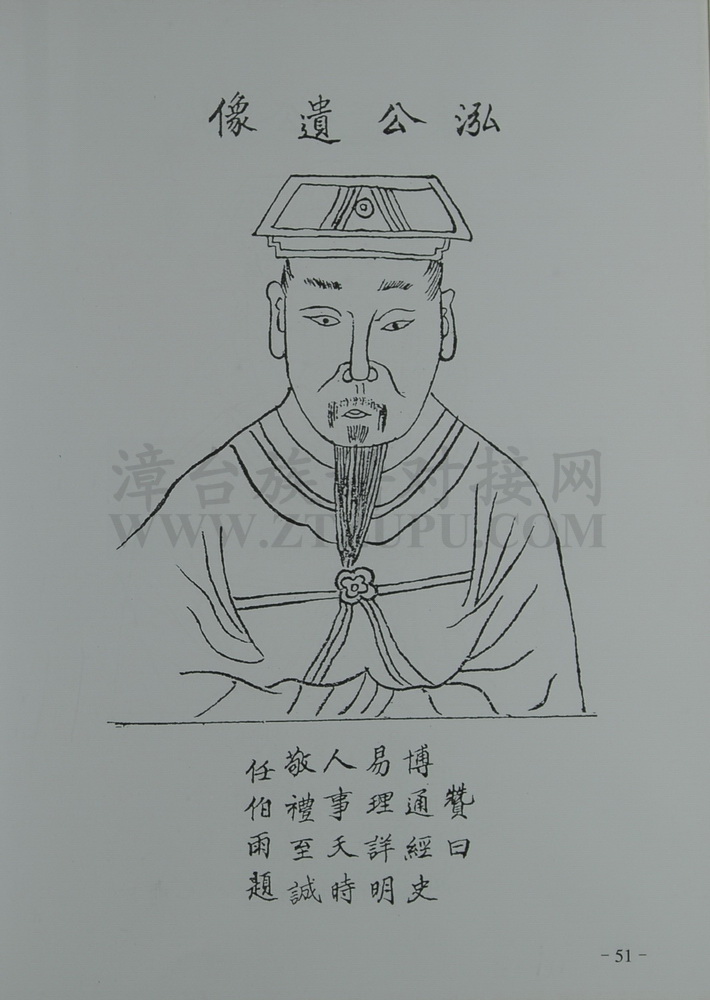 泓公遺像
漳台族谱对接网
WWW.ZTZUPU.COM
贊曰
博通經史
易理詳明
人事天時
敬禮至誠
任伯雨題
- 51 -